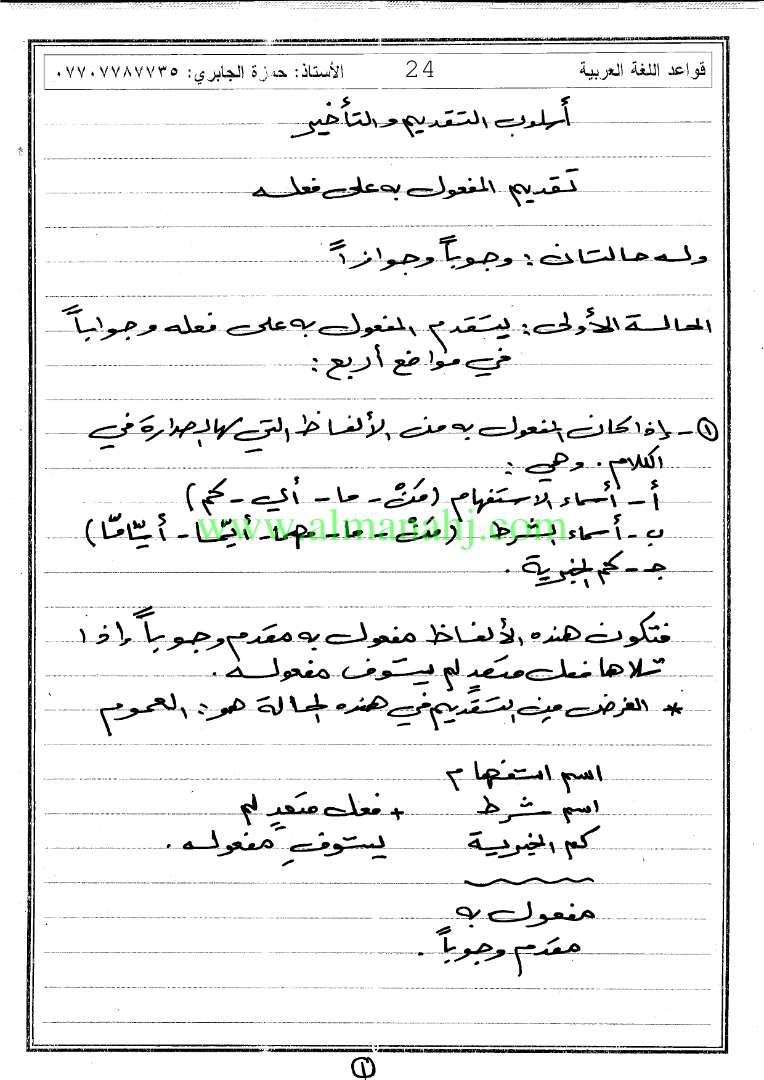 قواعد اللغة العربية 24 الأستاذ: حمزة الجابري: ٠٧٧٠٧٧٨٧٧٣٥
أسلوب التقديم والتأخير
تقديم المفعول به على فعله
وله حالتان: وجوباً وجوازاً
الحالة الأولى: يتقدم المفعول به على فعله وجواباً
في مواضع أربع:
١- إذا كان المفعول به من الألفاظ التي لها الصدارة في
الكلام. وهي:
أ- أسماء الاستفهام (مَنْ - ما - أي - كم)
ب- أسماء الشرط (مَنْ - ما - مهما - أيّما - أيّاما)
جـ- كم الخبرية.
www.almanahj.com
فتكون هذه الألفاظ مفعول به مقدم وجوباً إذا
تلاها فعل متعدٍ لم يستوف مفعوله.
* الغرض من التقديم في هذه الحالة هو: العموم
اسم استفهام
اسم شرط + فعل متعدٍ لم
كم الخبرية يستوفِ مفعوله.
مفعول به
مقدم وجوباً.
١